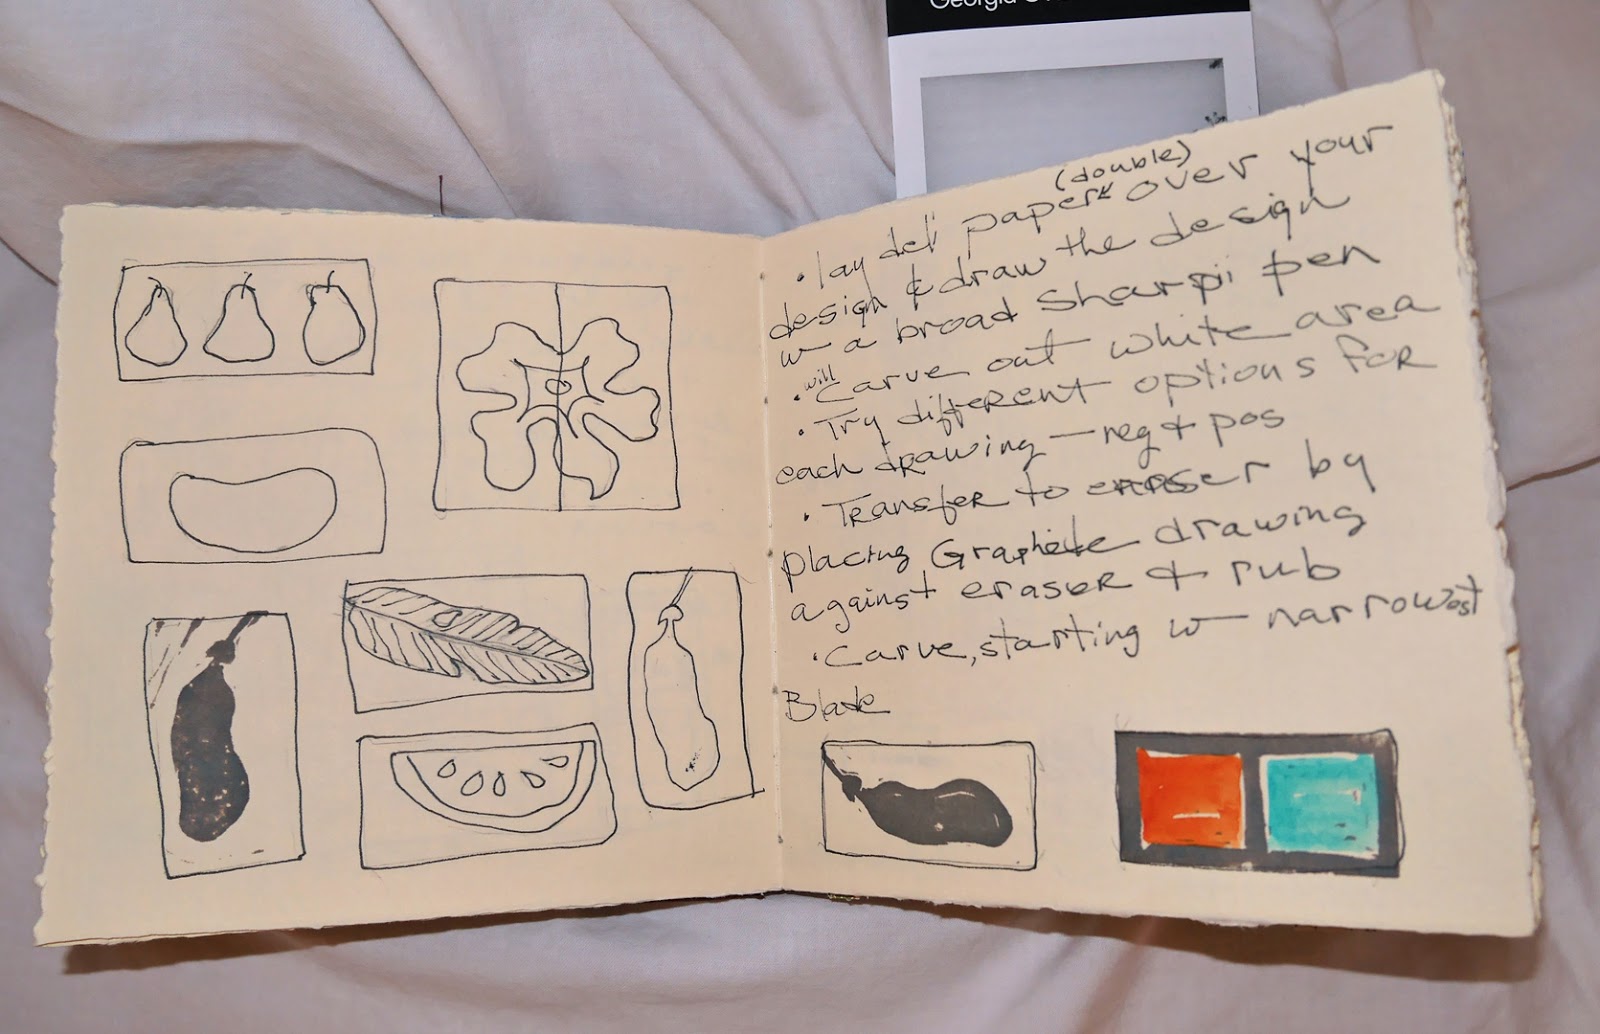 Georgia O
(double)
• lay deli paper over your
design & draw the design
w a broad Sharpii pen
will
• Carve out white area
• Try different options for
each drawing — neg & pos
• Transfer to eraser by
placing Graphite drawing
against eraser & rub
• Carve, starting w narrowest
Blade